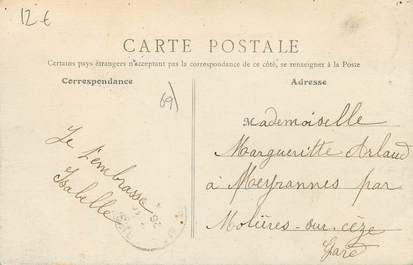 12 €
CARTE POSTALE
Certains pays étrangers n'acceptant pas la correspondance de ce côté, se renseigner à la Poste
Correspondance
Adresse
69
Je t'embrasse
Isabelle
Mademoiselle
Margueritte Arlaud
à Meyrannes par
Molières-sur-cèze
Gard